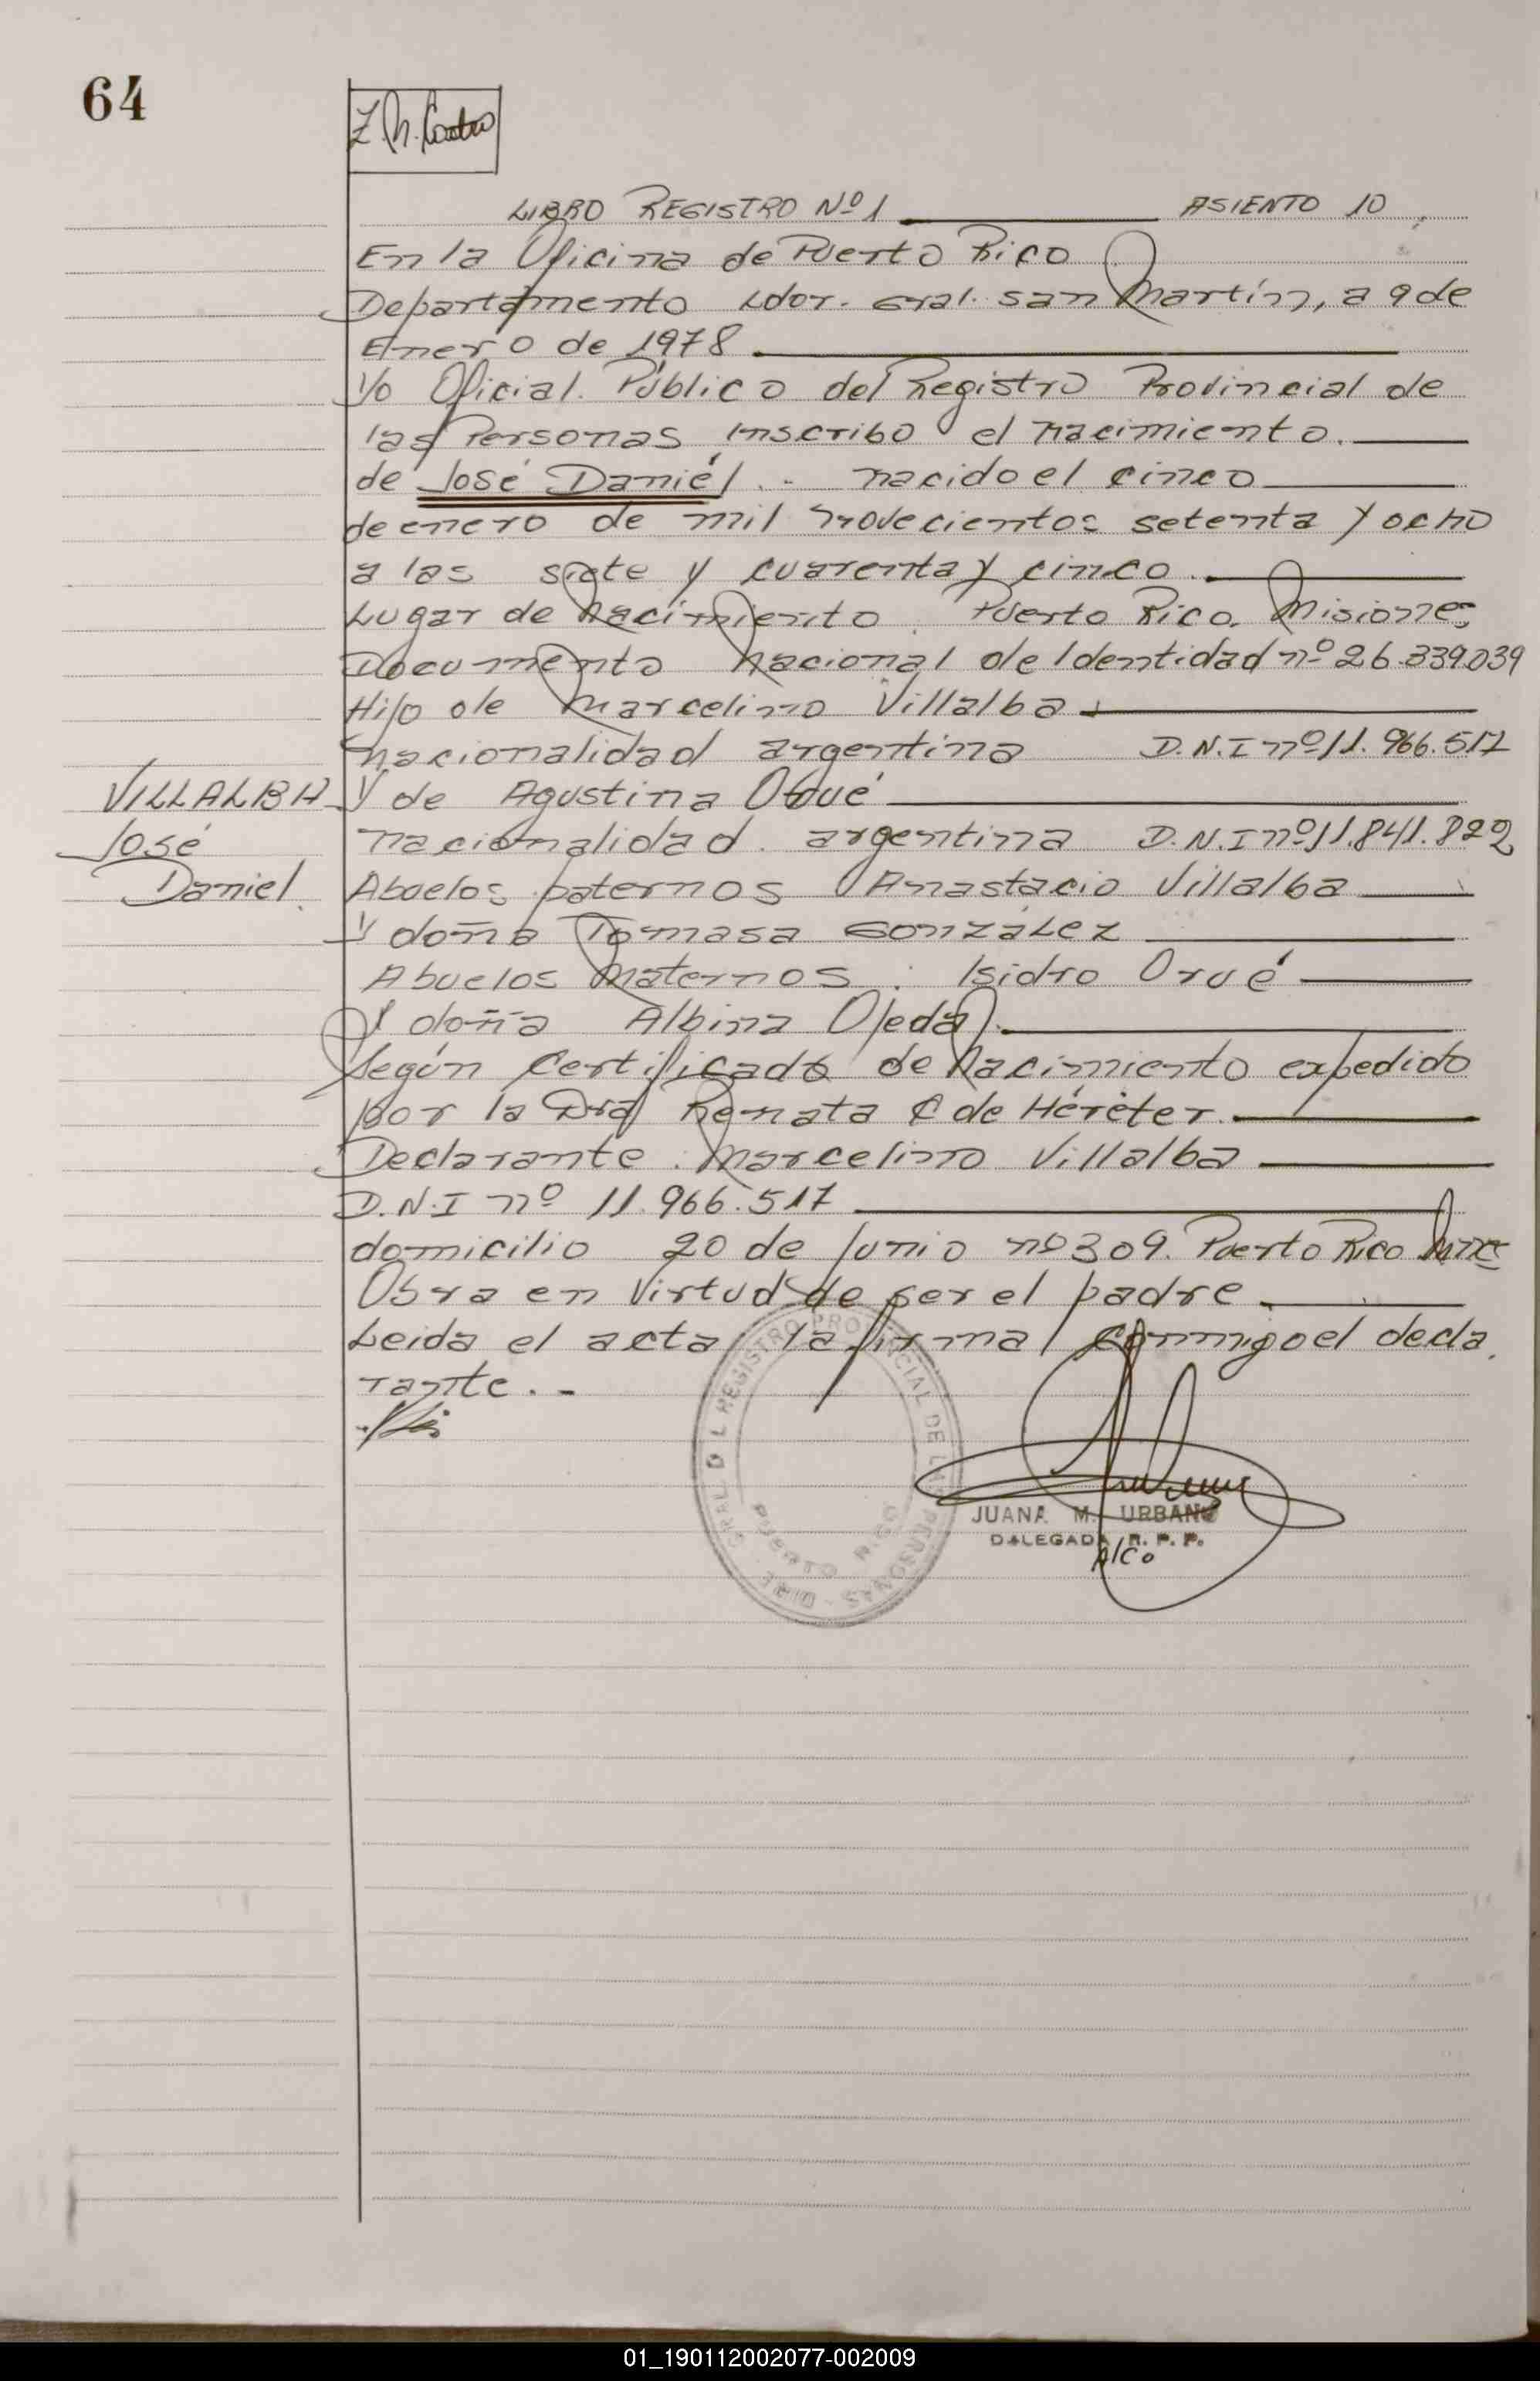 64
LIBRO REGISTRO Nº 1 ASIENTO 10
En la Oficina de Puerto Rico
Departamento Ldor. Gral. San Martín, a 9 de
Enero de 1978
Yo Oficial Público del Registro Provincial de
las Personas inscribo el nacimiento.
de José Daniél . - nacido el cinco
de enero de mil novecientos setenta y ocho
a las siete y cuarenta y cinco.
Lugar de nacimiento. Puerto Rico. Misiones
Documento nacional de Identidad nº 26.339.039
Hijo de Marcelino Villalba
nacionalidad argentina D.N.I nº 11.966.517
VILLALBA
José
Daniel.
y de Agustina Orué
nacionalidad. argentina D.N.I nº 11.841.822
Abuelos paternos Anastacio Villalba
y doña Tomasa González
Abuelos Maternos : Isidro Orué
y doña Albina Ojeda.
Según Certificado de nacimiento expedido
por la Dra Renata C de Héreter.
Declarante. Marcelino Villalba
D.N.I nº 11.966.517
domicilio 20 de Junio nº 309. Puerto Rico Mnes
Obra en virtud de ser el padre.
Leida el acta la firma conmigo el decla
rante. -
DIRE GRAL D L REGISTRO PROVINCIAL DE LAS PERSONAS -
PUERTO RICO
JUANA M. URBANO
DALEGADA R. P. P.
01_190112002077-002009